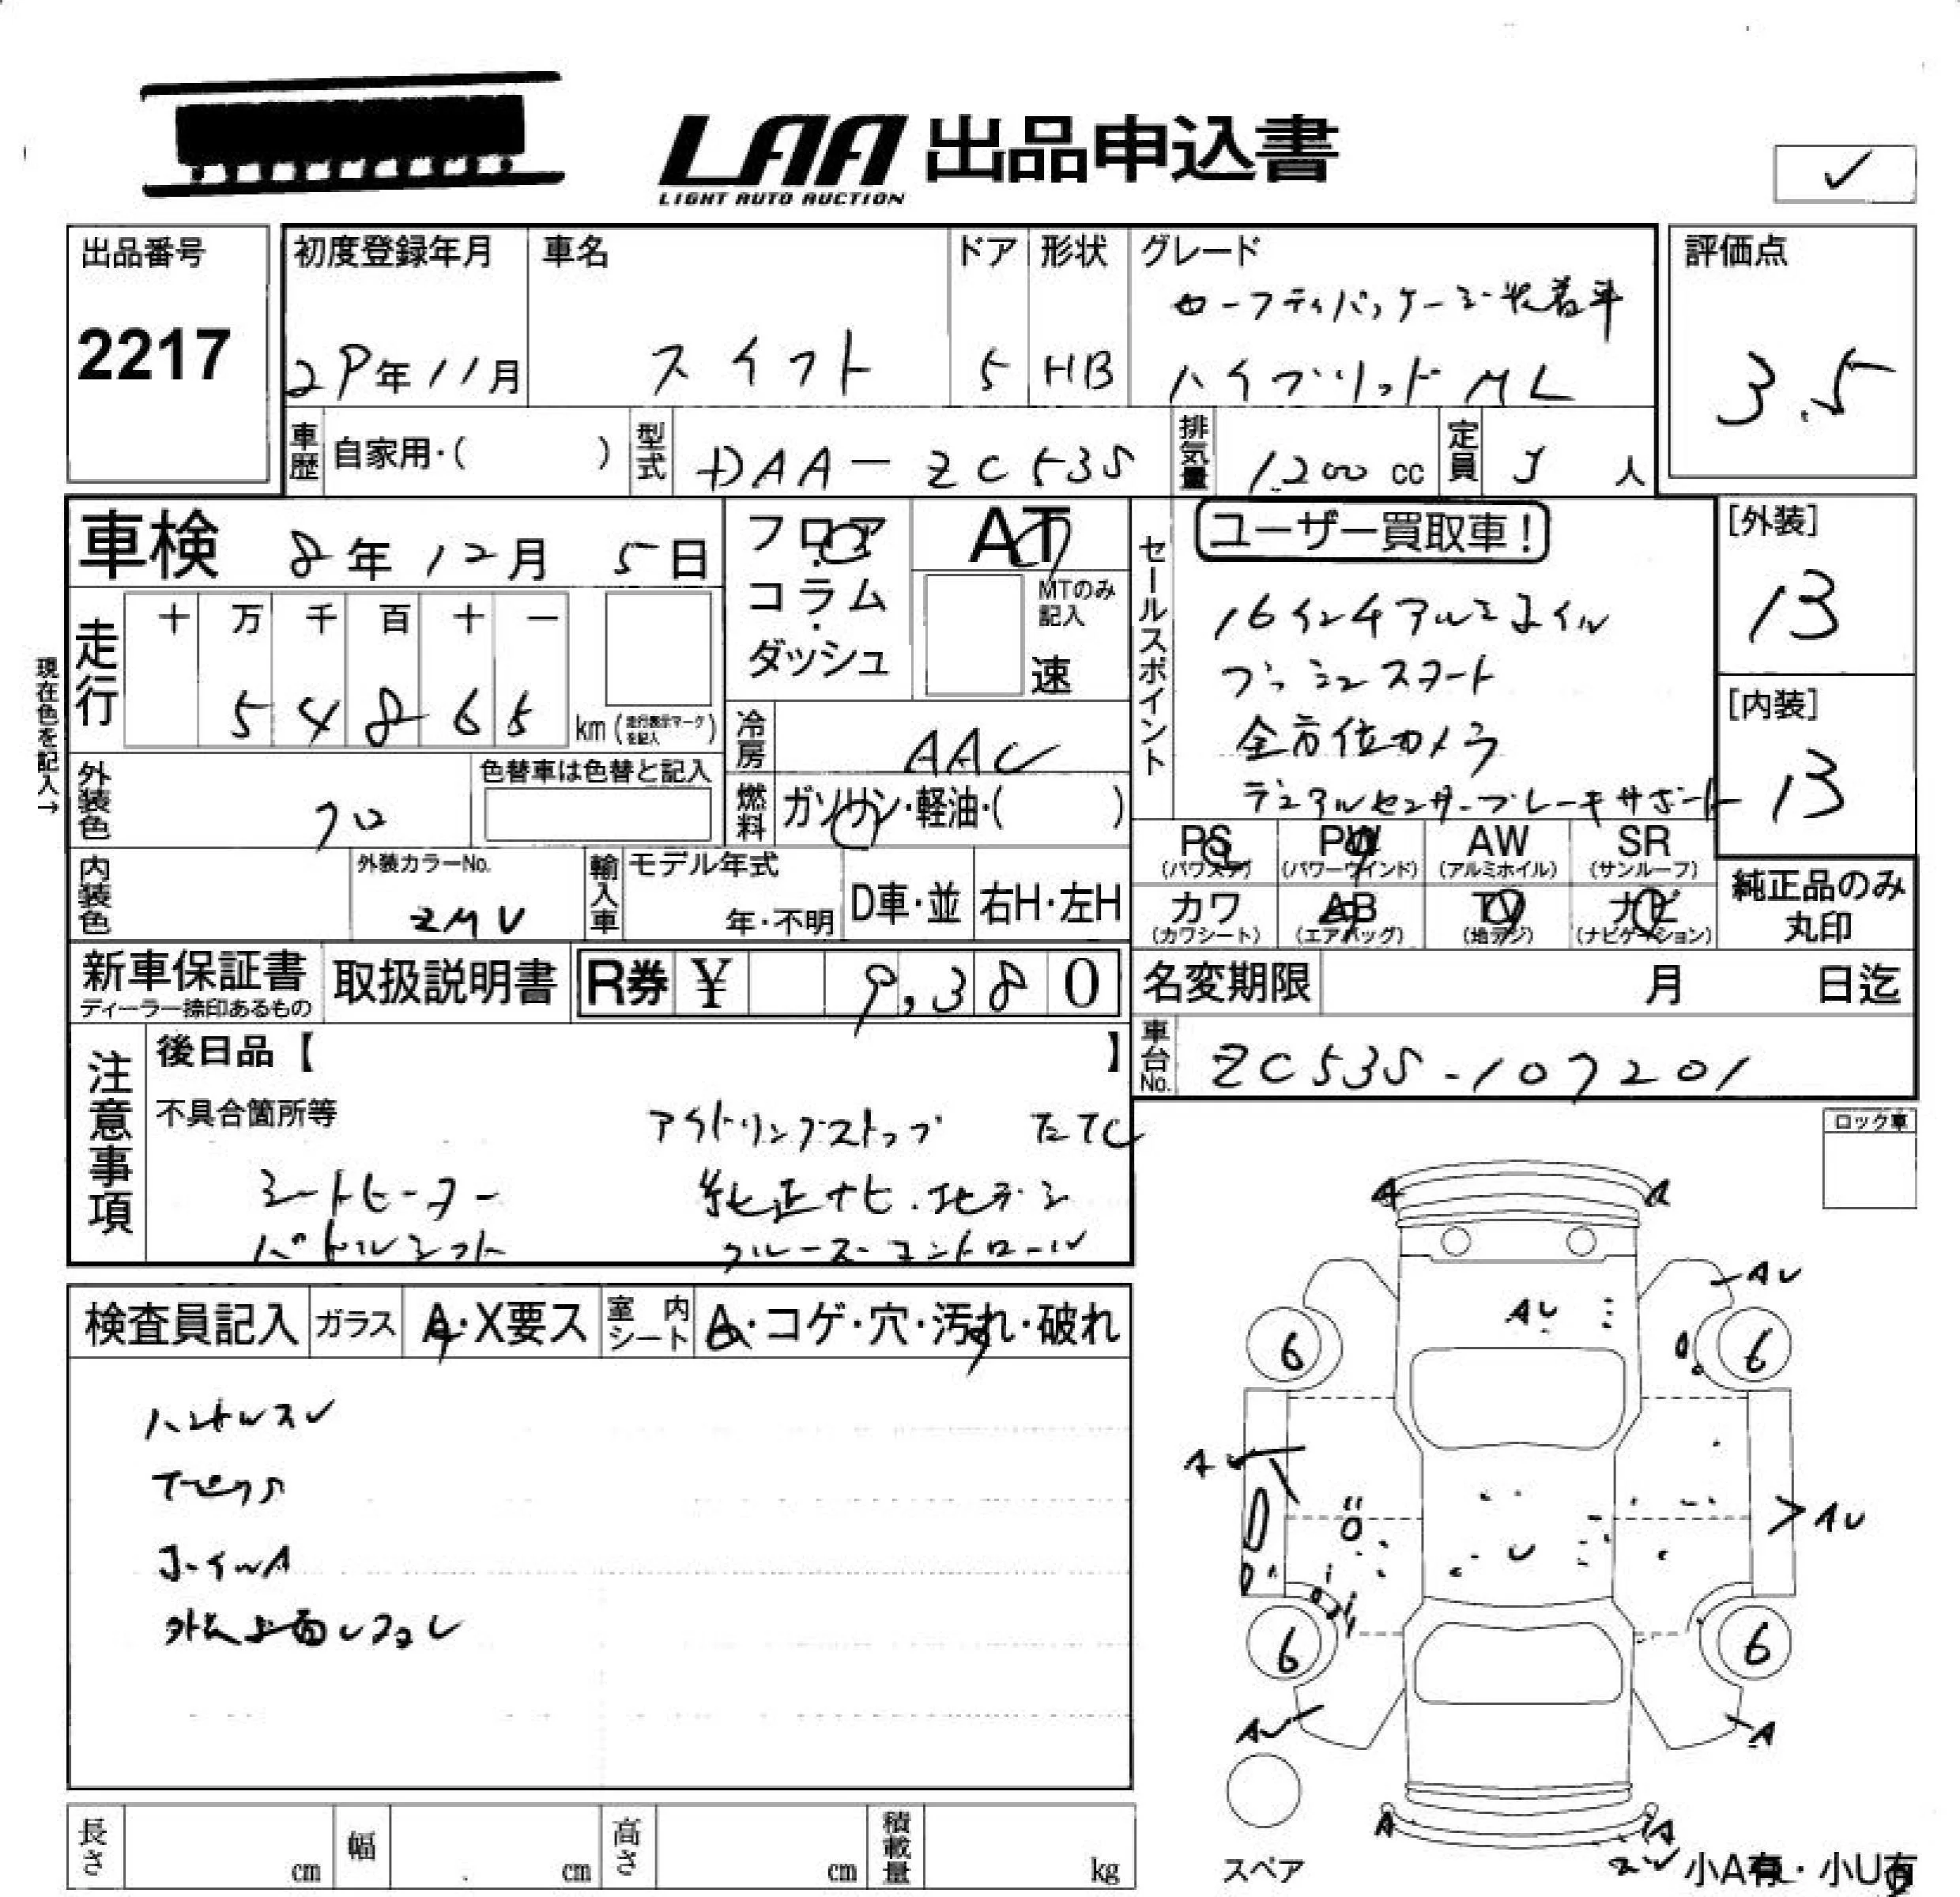 LAA 出品申込書
LIGHT AUTO AUCTION
✓
出品番号
2217
初度登録年月
29年11月
車名
スイフト
ドア
5
形状
HB
グレード
セーフティパッケージ装着車
ハイブリッド ML
評価点
3.5
車歴
自家用・( )
型式
DAA-ZC53S
排気量
1.200 cc
定員
5 人
車検 8年12月5日
フロア・コラム・ダッシュ
AT
MTのみ記入
速
セールスポイント
ユーザー買取車!
16インチアルミホイル
プッシュスタート
全方位カメラ
デュアルセンサーブレーキサポート
[外装]
13
[内装]
13
現在色を記入→
走行
十 万 千 百 十 一
5 4 8 6 5
km (走行表示マークを記入)
冷房
AAC
燃料
ガソリン・軽油・( )
外装色
クロ
色替車は色替と記入
内装色
外装カラーNo.
ZMV
輸入車
モデル年式
年・不明
D車・並
右H・左H
PS (パワステ)
PW (パワーウインド)
AW (アルミホイル)
SR (サンルーフ)
カワ (カワシート)
AB (エアバッグ)
TV (地デジ)
ナビ (ナビゲーション)
純正品のみ
丸印
新車保証書
ディーラー捺印あるもの
取扱説明書
R券 ¥ 9,380
名変期限 月 日迄
車台No.
ZC53S-107201
注意事項
後日品【 】
不具合箇所等
アイドリングストップ ETC
シートヒーター 純正ナビ.地デジ
パドルシフト クルーズコントロール
ロック車
検査員記入
ガラス
A・X要ス
室内シート
A・コゲ・穴・汚れ・破れ
ハンドルスレ
ホイルA
A A
AU
AU
6 6
AU
U
AU
6 6
AU A
A A
スペア
小A有・小U有
長さ cm
幅 cm
高さ cm
積載量 kg